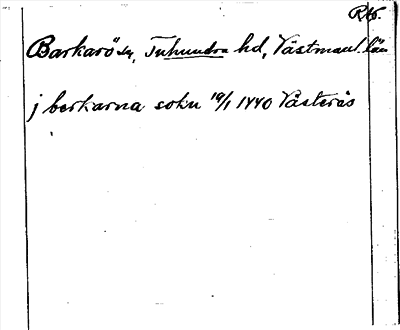 RAp.
Barkarö sn, Tuhundra hd, Västmanl. län
j berkarna sokn 19/1 1440 Västerås